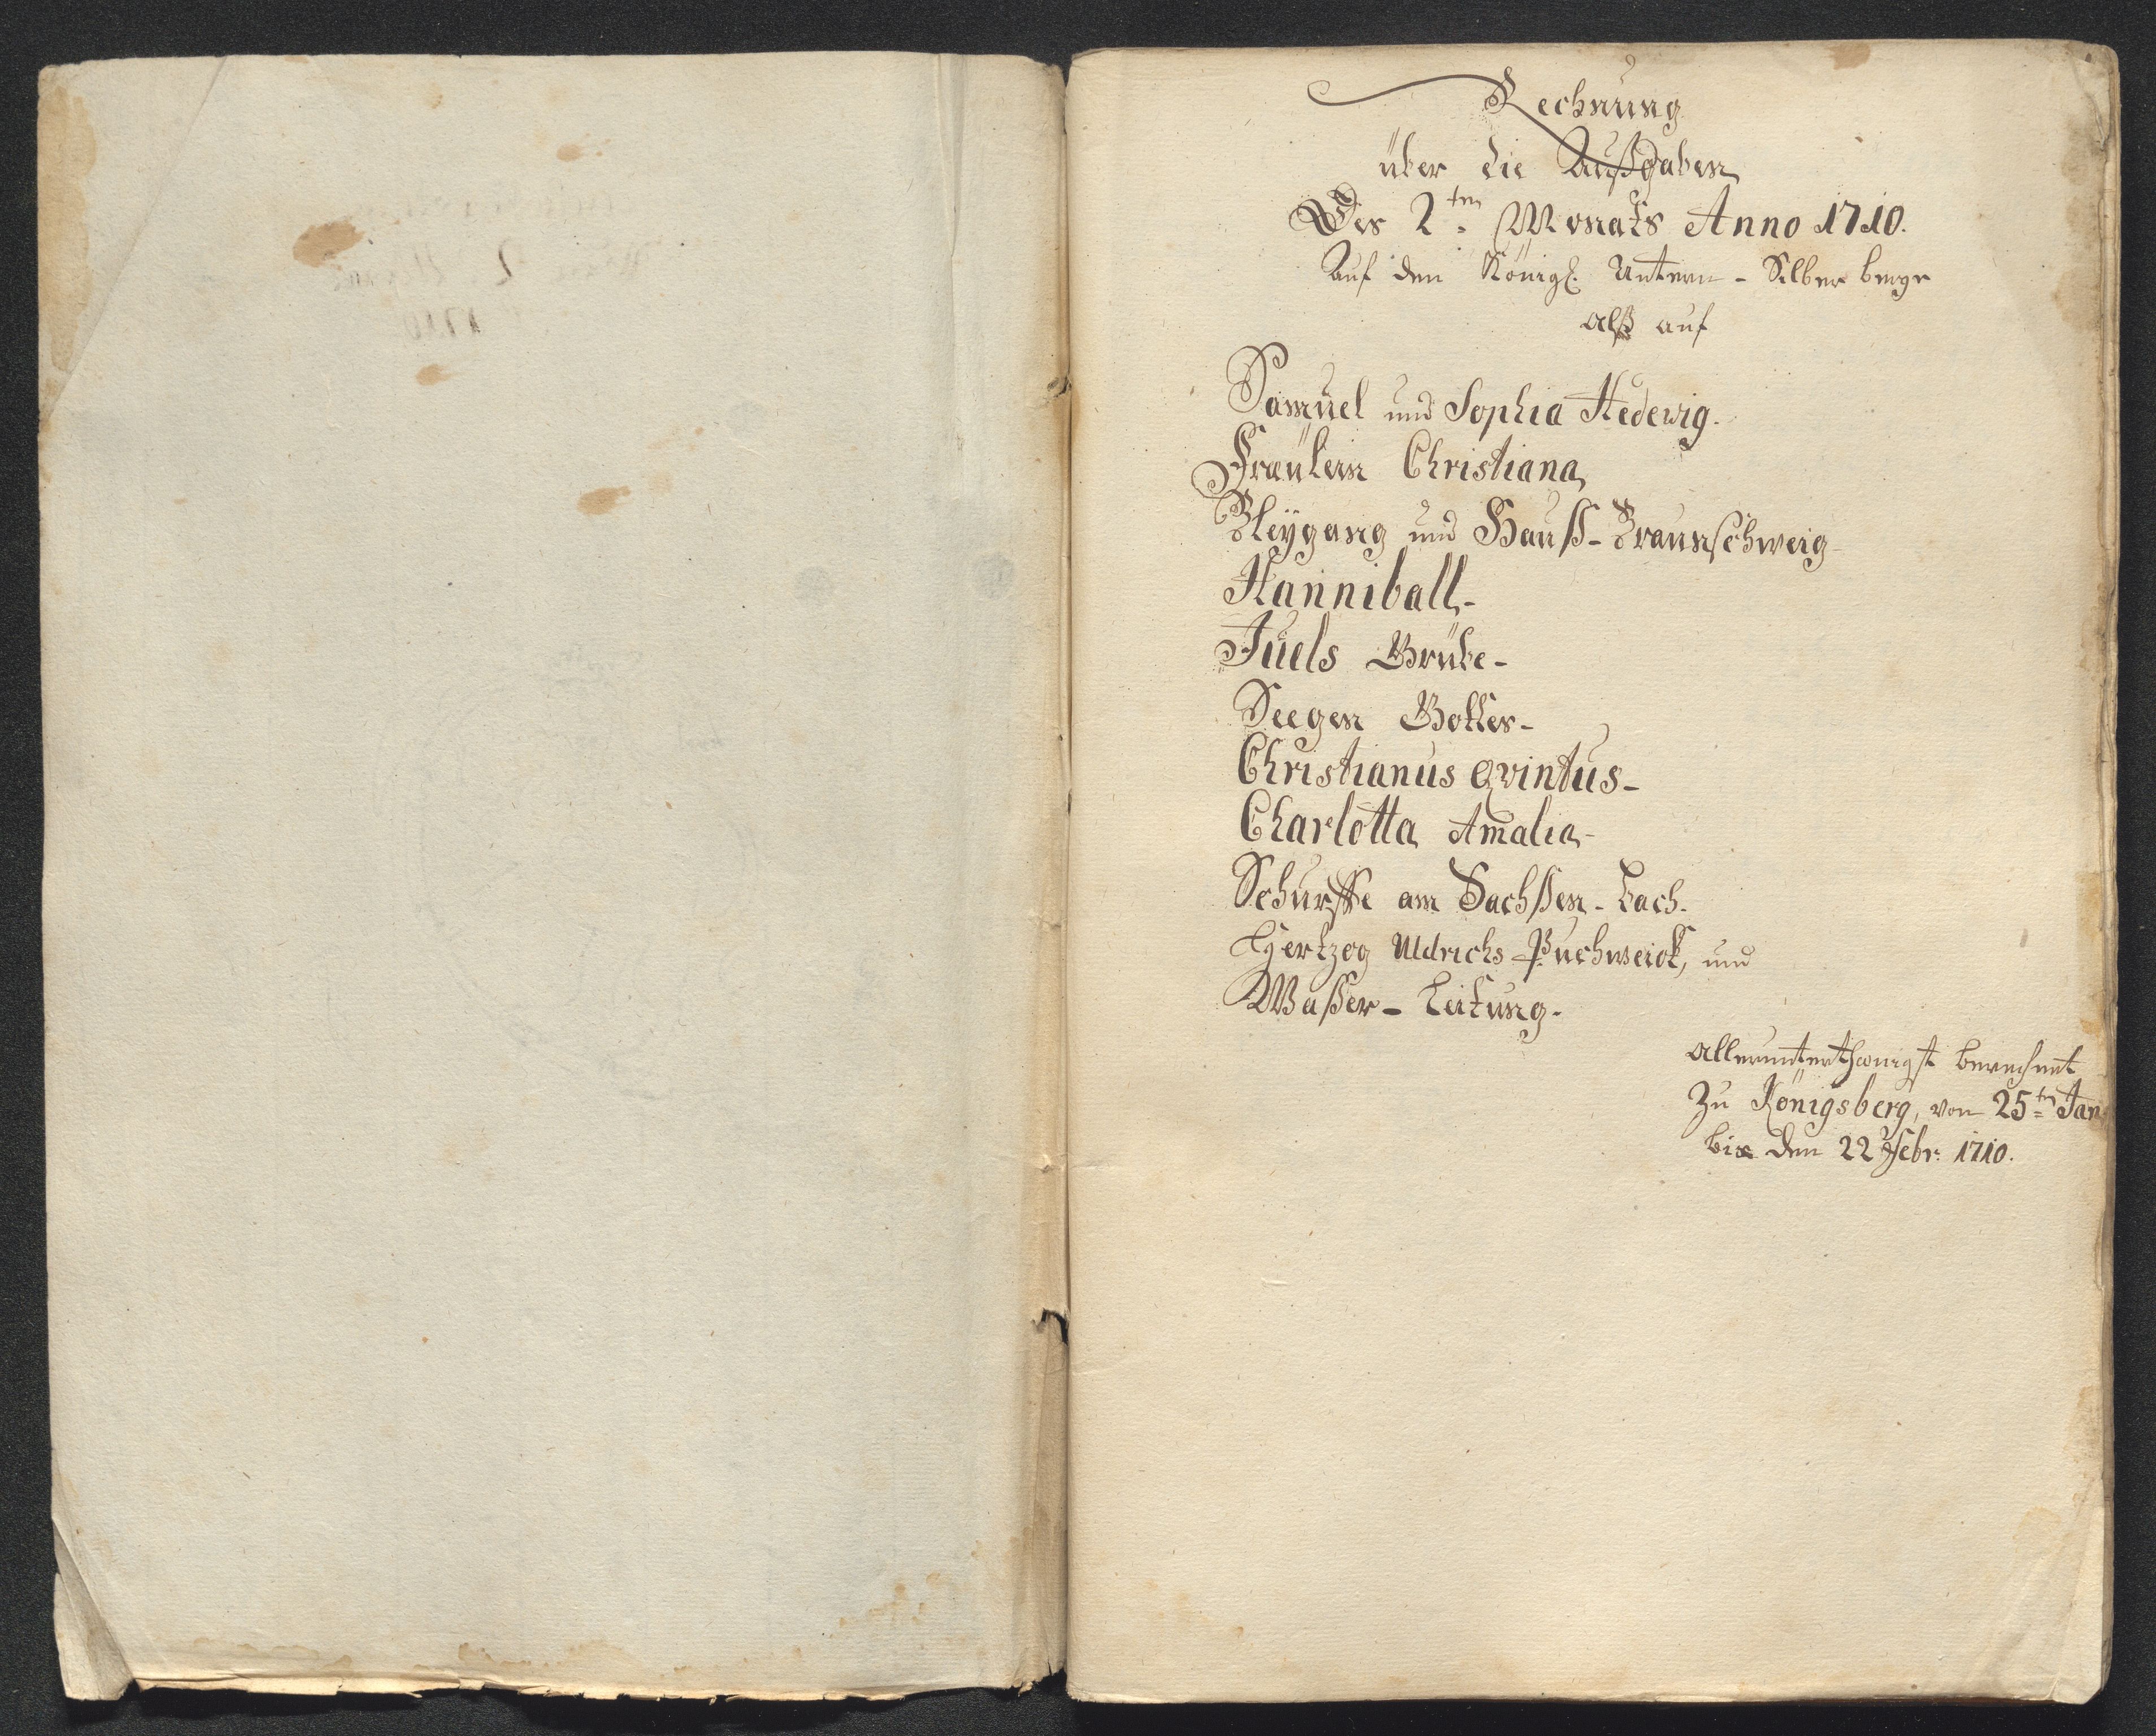 Rechnung
über die Außgaben
Des 2ten Monats Anno 1710.
Auf den Königl. Untern - Silber berge
alß auf
Samuel und Sophia Hedewig.
Fräulein Christiana,
Bleÿgang und Hauß - Braunschweig -
Hanniball -
Juels Grube -
Seegen Gottes -
Christianus Qvintus -
Charlotta Amalia -
Schurffe am Sachßen - bach.
Hertzog Uldrichs Puchwerck, und
Waßer - Leitung.
Allerunterthänigst berechnet
Zu Königsberg, von 25ten Jan.
bis den 22 Febr: 1710.